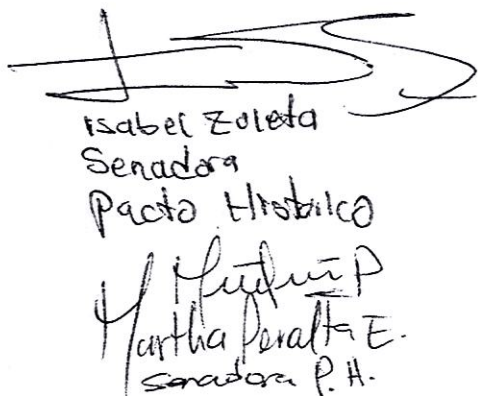 Isabel Zuleta
Senadora
Pacto Histórico
Martha Peralta E.
Senadora P. H.